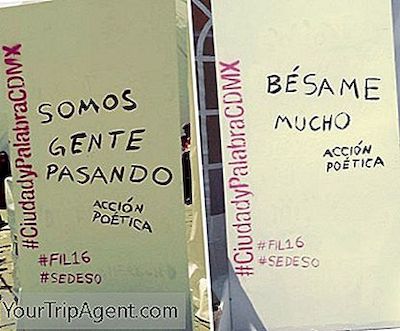 #CiudadyPalabraCDMX
SOMOS
GENTE
PASANDO
ACCIÓN
POÉTICA
#FIL16
#SEDESO
#CiudadyPalabraCDMX
BÉSAME
MUCHO
ACCIÓN
POÉTICA
#FIL16
#SEDESO
YourTripAgent.com